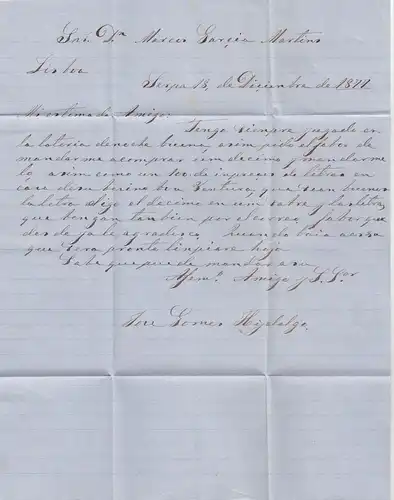 Snr. Dn. Marcos Garçia Martins
Lisboa
Serpa 13, de Diciembre de 1871
Mi estemado Amigo:
Tengo siempre jugado en
la loteria de noche buena, asim pido el fabor de
mandarme a comprar um decimo y mandarme
lo asim como un 100 de impresos de letras en
casa de su berino bva Ventura, que sean buenos
la letra digo el decimo en um sobre y las letras
que bengan tambien por el correo, fabor que
desde ja le agradesco. Quando baia a essa
que sera pronto limpiare hoja
Sabe que puede mandar a su
Afemo. Amigo y S. Sor
Jose Gomes Hidalgo